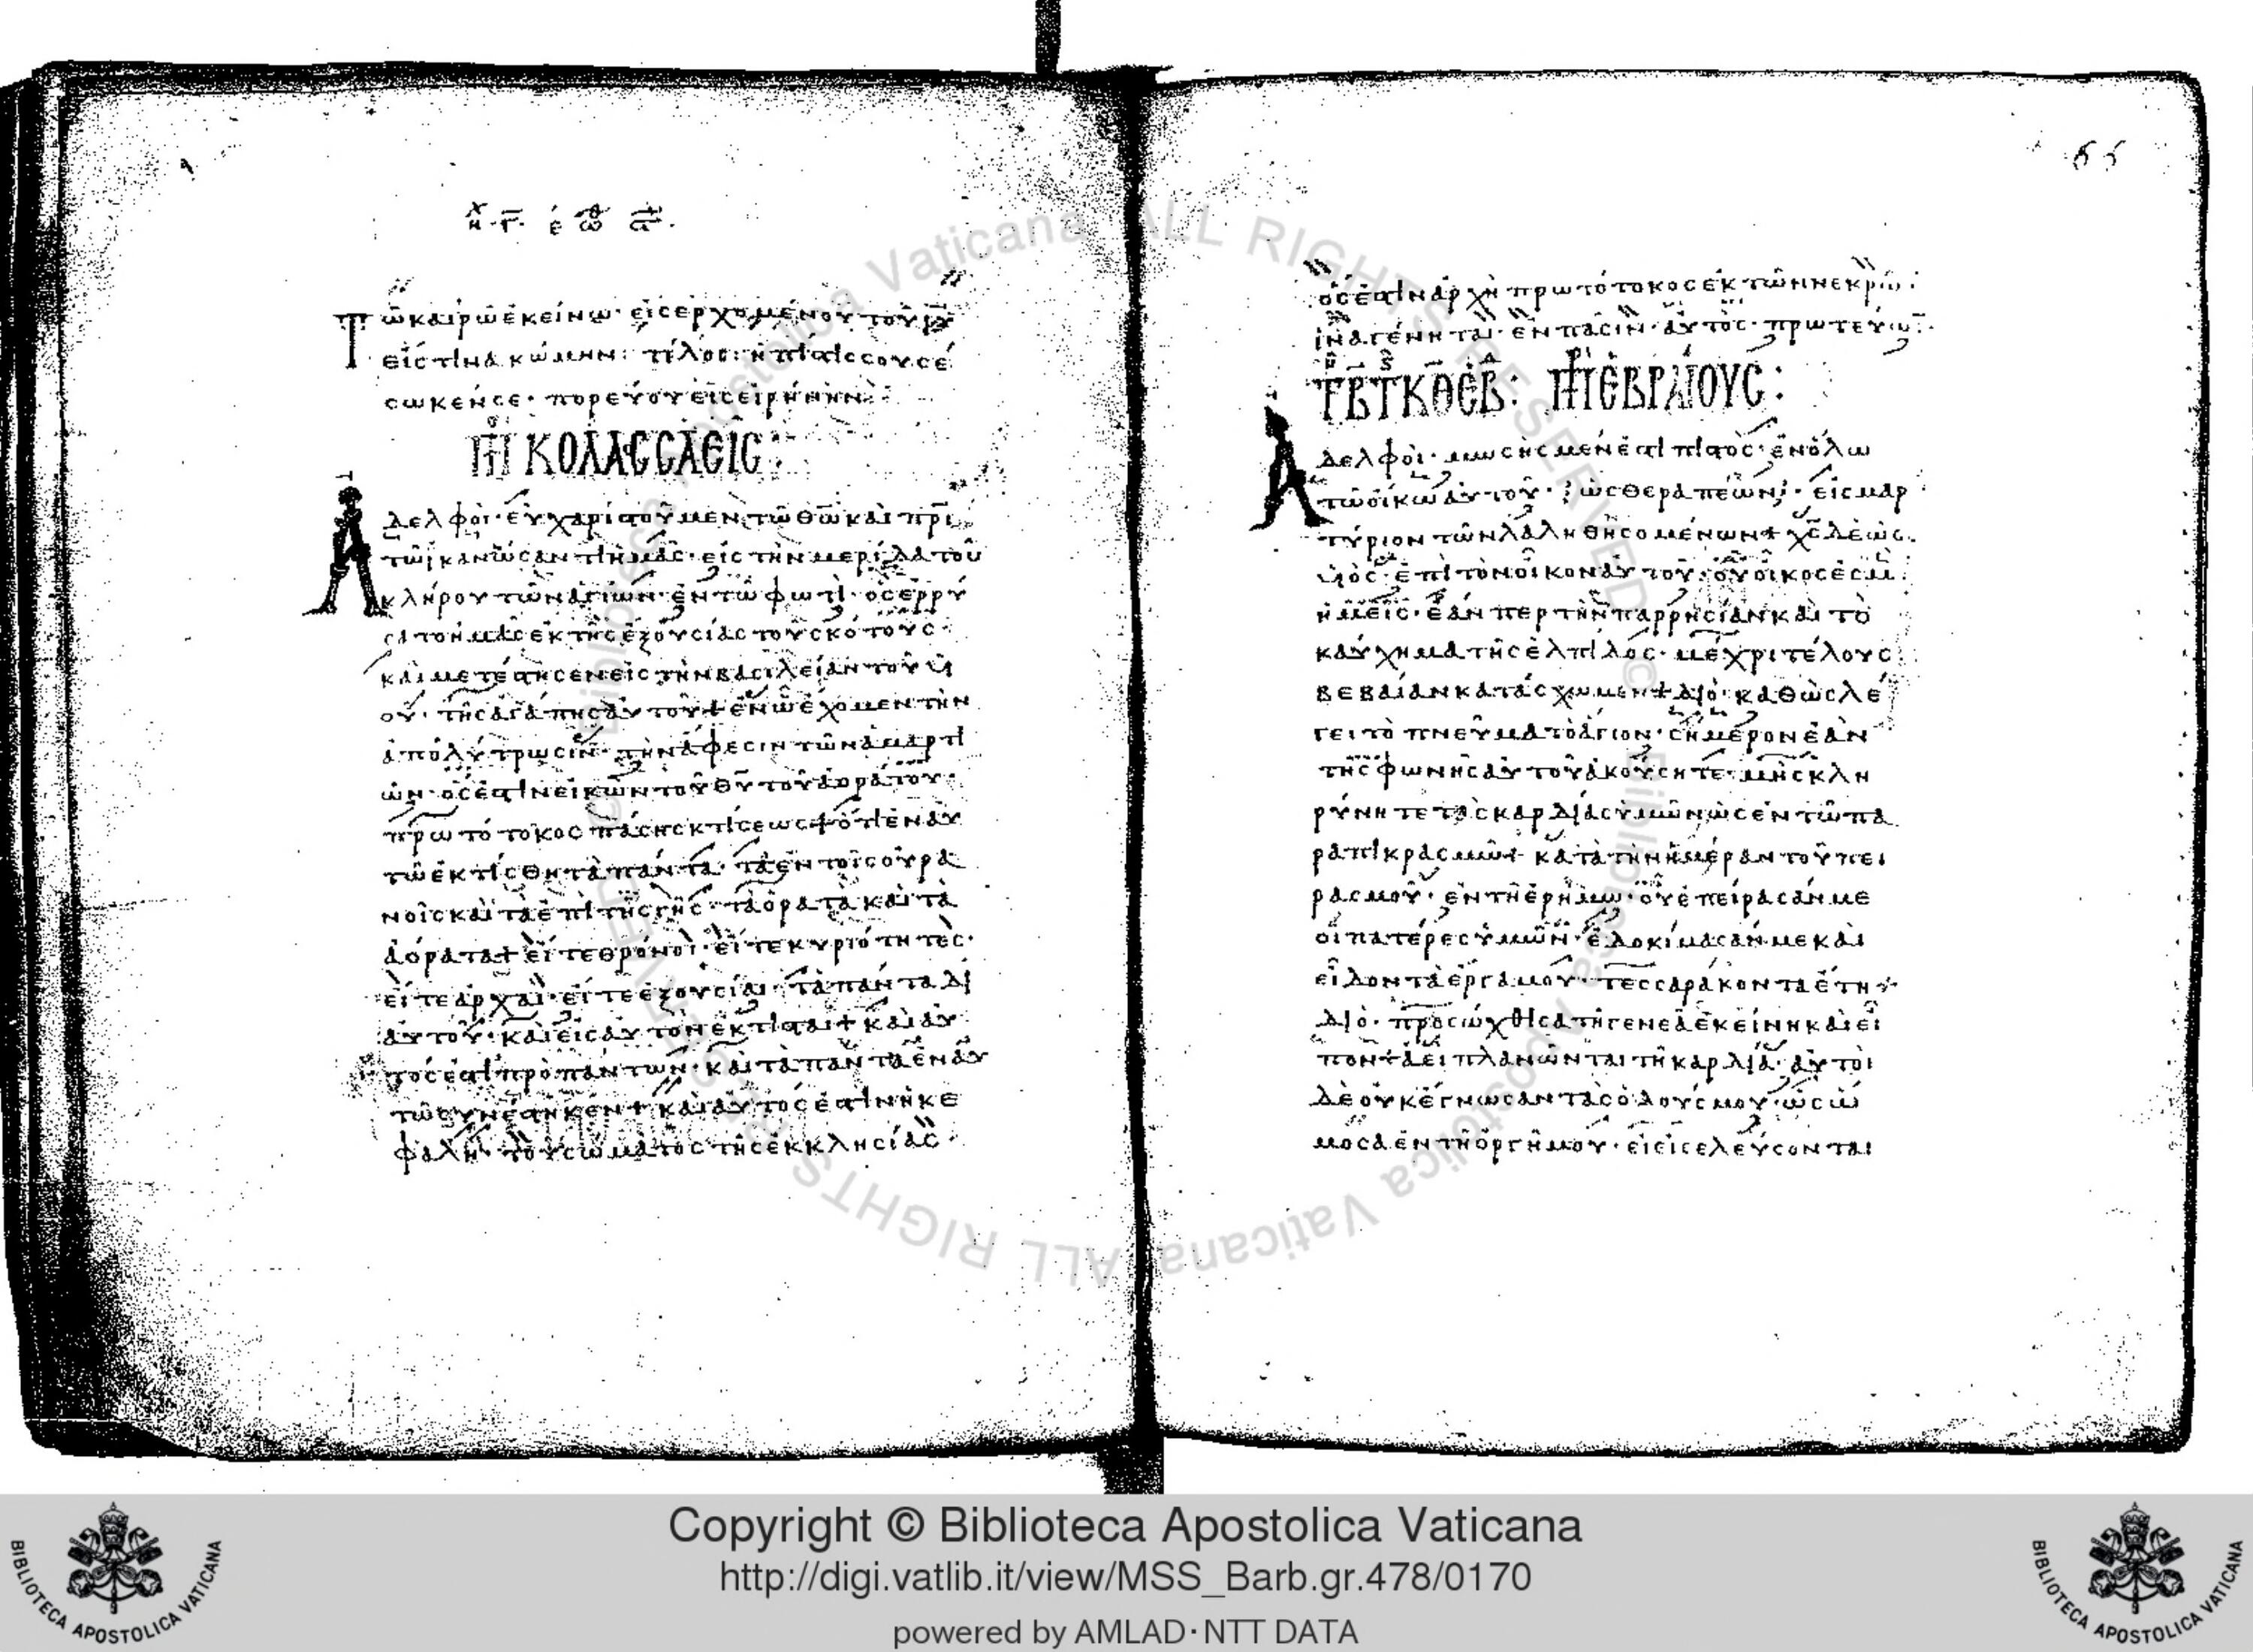 Τῶ καιρῶ ἐκείνω· εἰσερχομένου τοῦ ἰυ
εἴς τινα κώμην: τέλος: ἡ πίστις σου σέ
σωκέν σε· πορεύου εἰς εἰρήνην
ΚΟΛΑΣΣΑΕΙΣ:
Ἀδελφοὶ· εὐχαριστοῦμεν τῶ θῶ καὶ πρὶ
τῶ ἱκανώσαντι ἡμᾶς· εἰς τὴν μερίδα τοῦ
κλήρου τῶν ἁγίων· ἐν τῶ φωτὶ· ὃς ἐρρύ
σατο ἡμᾶς ἐκ τῆς ἐξουσίας τοῦ σκότους·
καὶ μετέστησεν εἰς τὴν βασιλείαν τοῦ υἱ
οῦ· τῆς ἀγάπης αὐτοῦ + ἐν ὧ ἔχομεν τὴν
ἀπολύτρωσιν· τὴν ἄφεσιν τῶν ἁμαρτι
ῶν· ὅς ἐστιν εἰκὼν τοῦ θυ τοῦ ἀοράτου·
πρωτότοκος πάσης κτίσεως + ὅτι ἐν αὐ
τῶ ἐκτίσθη τὰ πάντα· τὰ ἐν τοῖς οὐρα
νοῖς καὶ τὰ ἐπὶ τῆς γῆς· τὰ ὁρατὰ καὶ τὰ
ἀόρατα + εἴτε θρόνοι· εἴτε κυριότητες·
εἴτε ἀρχαὶ· εἴτε ἐξουσίαι· τὰ πάντα δι
αὐτοῦ· καὶ εἰς αὐτὸν ἔκτισται + καὶ αὐ
τός ἐστι πρὸ πάντων· καὶ τὰ πάντα ἐν αὐ
τῶ συνέστηκεν + καὶ αὐτός ἐστιν ἡ κε
φαλὴ· τοῦ σώματος τῆς ἐκκλησίας·
ὅς ἐστιν ἀρχὴ πρωτότοκος ἐκ τῶν νεκρῶ:
ἵνα γένηται· ἐν πᾶσιν· αὐτὸς· πρωτεύω
ΕΒΡΑΙΟΥΣ:
Ἀδελφοὶ· μωσῆς μὲν ἐστὶ πιστὸς· ἐν ὅλω
τῶ οἴκω αὐτοῦ· ὡς θεράπων· εἰς μαρ
τύριον τῶν λαληθησομένων + χς δὲ ὡς
υἱὸς· ἐπὶ τὸν οἶκον αὐτοῦ· οὗ οἶκος ἐσμ
ἡμεῖς· ἐάν περ τὴν παρρησίαν καὶ τὸ
καύχημα τῆς ἐλπίδος· μέχρι τέλους
βεβαίαν κατάσχωμεν + διὸ· καθὼς λέ
γει τὸ πνεῦμα τὸ ἅγιον· σήμερον ἐὰν
τῆς φωνῆς αὐτοῦ ἀκούσητε· μὴ σκλη
ρύνητε τὰς καρδίας ὑμῶν ὡς ἐν τῶ πα
ραπικρασμῶ + κατὰ τὴν ἡμέραν τοῦ πει
ρασμοῦ· ἐν τῆ ἐρήμω· οὗ ἐπείρασάν με
οἱ πατέρες ὑμῶν· ἐδοκίμασάν με καὶ
εἶδον τὰ ἔργα μου· τεσσαράκοντα ἔτη +
διὸ· προσώχθισα τῆ γενεᾶ ἐκείνη καὶ εἶ
πον + ἀεὶ πλανῶνται τῆ καρδία· αὐτοὶ
δὲ οὐκ ἔγνωσαν τὰς ὁδούς μου· ὡς ὤ
μοσα ἐν τῆ ὀργῆ μου· εἰ εἰσελεύσονται
Copyright © Biblioteca Apostolica Vaticana
http://digi.vatlib.it/view/MSS_Barb.gr.478/0170
powered by AMLAD·NTT DATA
BIBLIOTECA APOSTOLICA VATICANA
BIBLIOTECA APOSTOLICA VATICANA